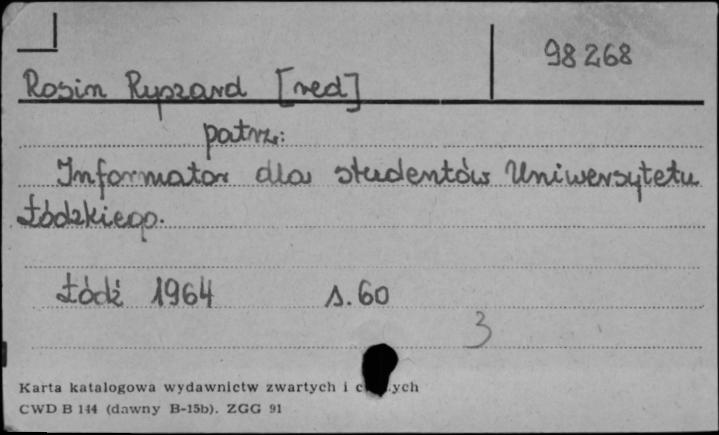 98268
Rosin Ryszard [red]
patrz:
Informator dla studentów Uniwersytetu
Łódzkiego.
Łódź 1964 s. 60
3
Karta katalogowa wydawnictw zwartych i
CWD B 144 (dawny B-15b). ZGG 91